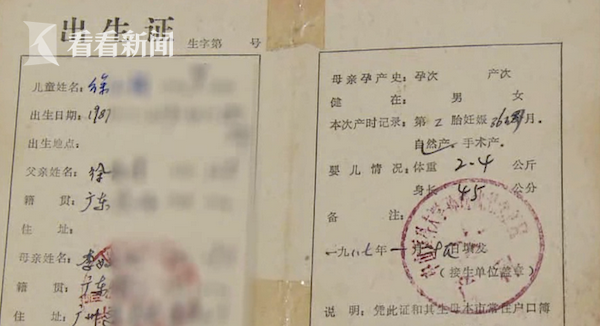 看看新闻
出生证
生字第 号
儿童姓名：徐
出生日期：1987
出生地点：
父亲姓名：徐
籍贯：广东
住址：
母亲姓名：李
广东
广州
母亲孕产史：孕次 产次
健在：男 女
本次产时记录：第2胎妊娠 月.
自然产、手术产.
婴儿情况：体重 2.4 公斤
身长 45 公分
备注：
一九八七年一月 日填发
（接生单位盖章）
说明：凭此证和其生母本市常住户口簿